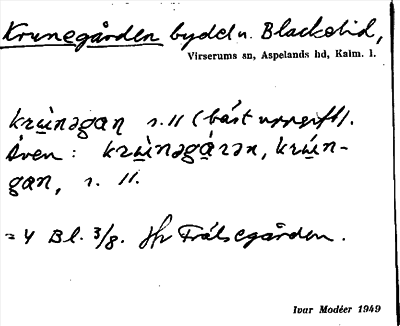 Krunegården bydel n. Blackelid,
Virserums sn, Aspelands hd, Kalm. l.
krùnəgan s. ll (bäst uppgift).
Även: krùnəgárən, krùn-
gan, s. ll.
= 4 Bl. 3/8. Jfr Frälsegården.
Ivar Modéer 1949